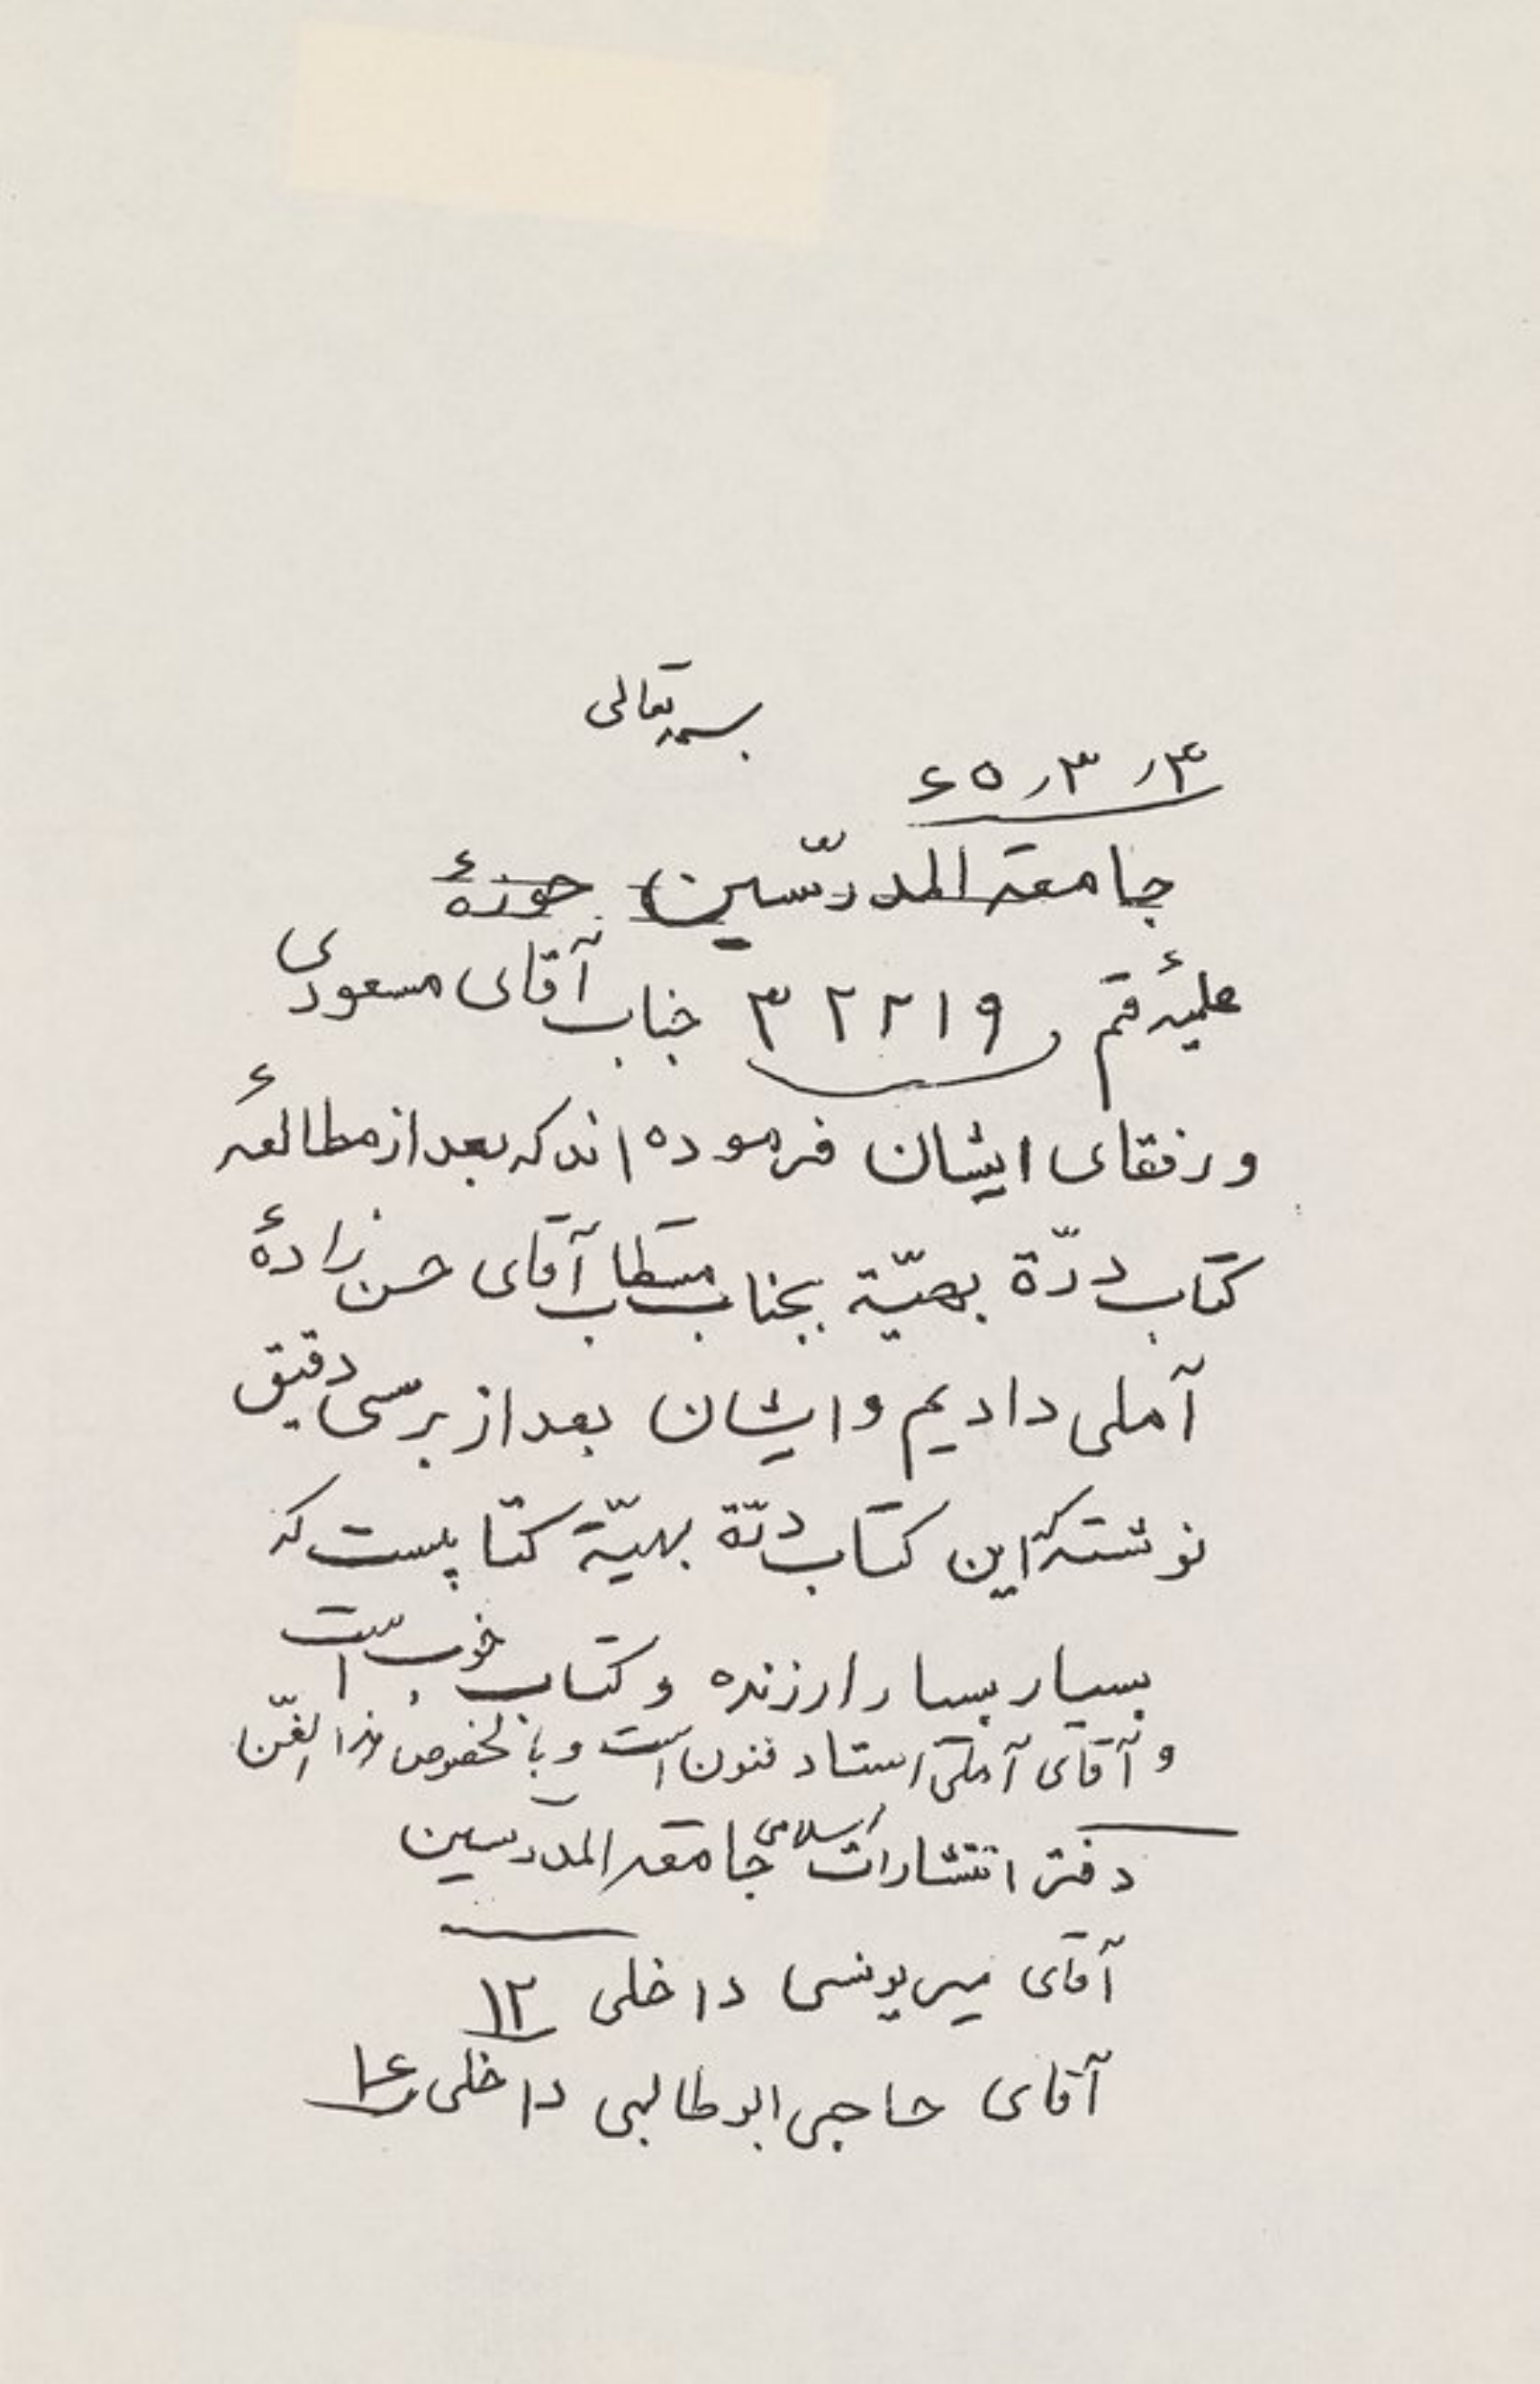 بسمه تعالی
۶۵٫۳٫۳
جامعه المدرّسین حوزهٔ
علمیهٔ قم ۳۲۲۱۹ جناب آقای مسعودی
و رفقای ایشان فرموده اند که بعد از مطالعهٔ
کتاب درّة بهیّة بجناب مستطاب آقای حسن زادهٔ
آملی دادیم و ایشان بعد از برسی دقیق
نوشته که این کتاب درّة بهیّة کتابیست که
بسیار بسیار ارزنده و کتاب خوب است
و آقای آملی استاد فنون است و بالخصوص هذا الفنّ
دفتر انتشارات اسلامی جامعه المدرسین
آقای میر یونسی داخلی ۱۲
آقای حاجی ابوطالبی داخلی